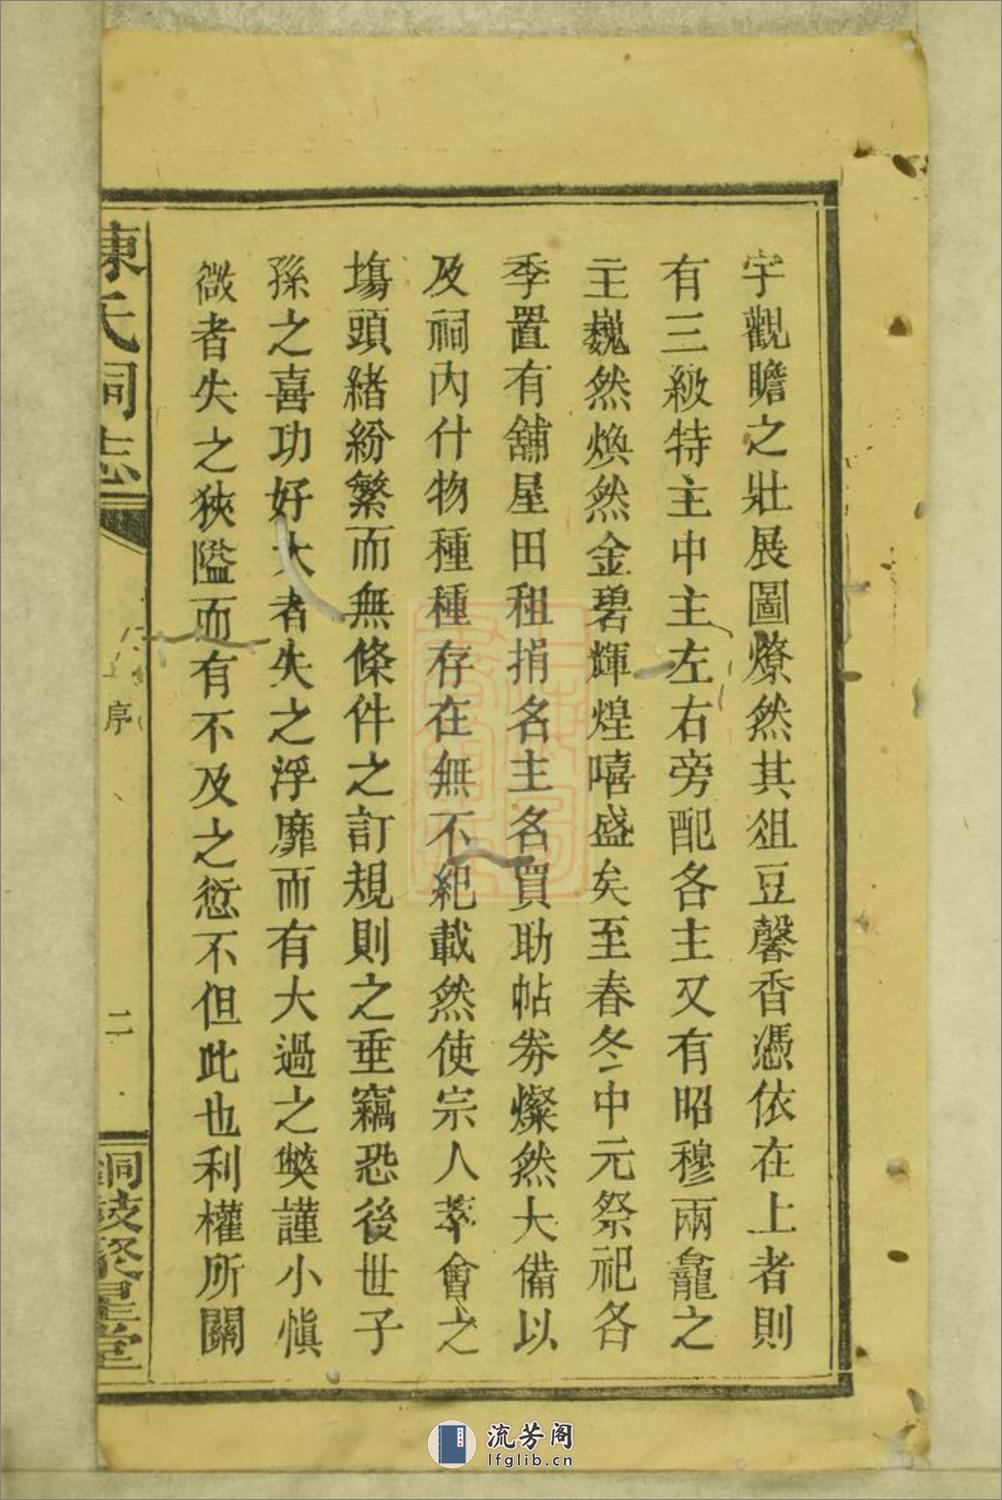 宇觀瞻之壯展圖燎然其俎豆馨香憑依在上者則
有三級特主中主左右旁配各主又有昭穆兩龕之
主巍然煥然金碧輝煌嘻盛矣至春冬中元祭祀各
季置有舖屋田租捐名主名買助帖券燦然大備以
及祠內什物種種存在無不紀載然使宗人萃會之
塲頭緒紛繁而無條件之訂規則之垂竊恐後世子
孫之喜功好大者失之浮靡而有大過之獘謹小慎
微者失之狹隘而有不及之愆不但此也利權所關
陳氏祠志
序
二
銅鼓聚星堂
流芳阁
lfglib.cn